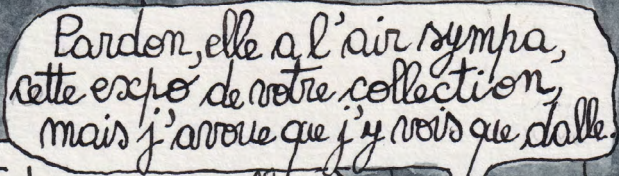 Pardon, elle a l'air sympa,
cette expo de votre collection,
mais j'avoue que j'y vois que dalle.